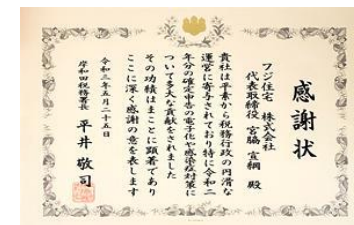 感謝状
フジ住宅 株式会社
代表取締役 宮脇 宣綱 殿
貴社は平素から税務行政の円滑な
運営に寄与されており特に令和二
年分の確定申告の電子化や感染症対策に
ついて多大な貢献をされました
その功績はまことに顕著であり
ここに深く感謝の意を表します
令和三年五月二十五日
岸和田税務署長
平井 敬司